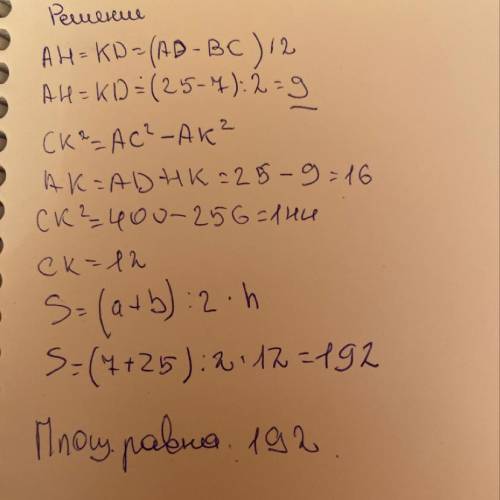 Решение
AH = KD = (AD - BC) : 2
AH = KD = (25 - 7) : 2 = 9
CK² = AC² - AK²
AK = AD + HK = 25 - 9 = 16
CK² = 400 - 256 = 144
CK = 12
S = (a + b) : 2 · h
S = (7 + 25) : 2 · 12 = 192
Площ. равна. 192.